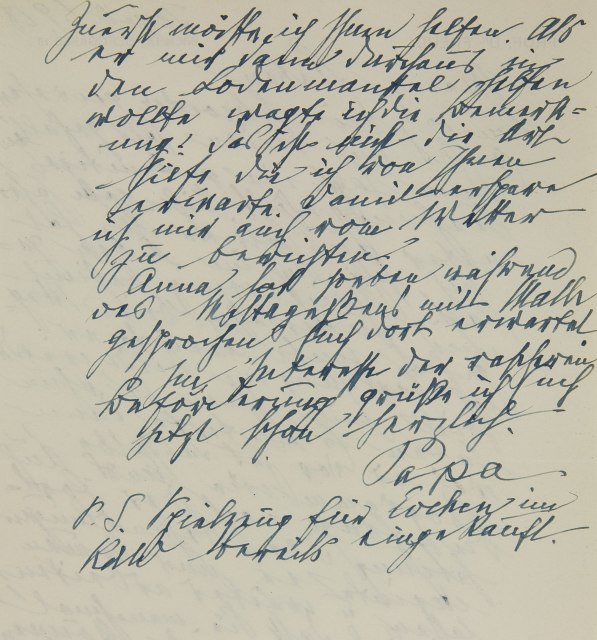 Zuerst möchte ich Ihnen helfen. Als
er mir dann durchaus in
den Lodenmantel helfen
wollte wagte ich die Bemerk=
ung: das ist nicht die Art
Hilfe die ich von Ihnen
erwarte. Damit erspare
ich mir auch vom Wetter
zu berichten.
Anna hat soeben während
des Mittagessens mit
gesprochen. Auch dort erwartet
Im Interesse der rascheren
Beförderung grüße ich Euch
jetzt schon herzlich.
Papa
P.S. Spielzeug für im
bereits eingekauft.